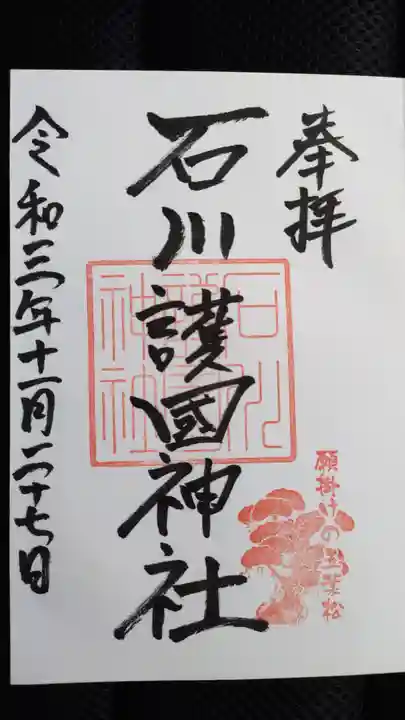 奉拝
願掛けの五葉松
石川護國神社
石川護國神社
令和三年十一月二十七日